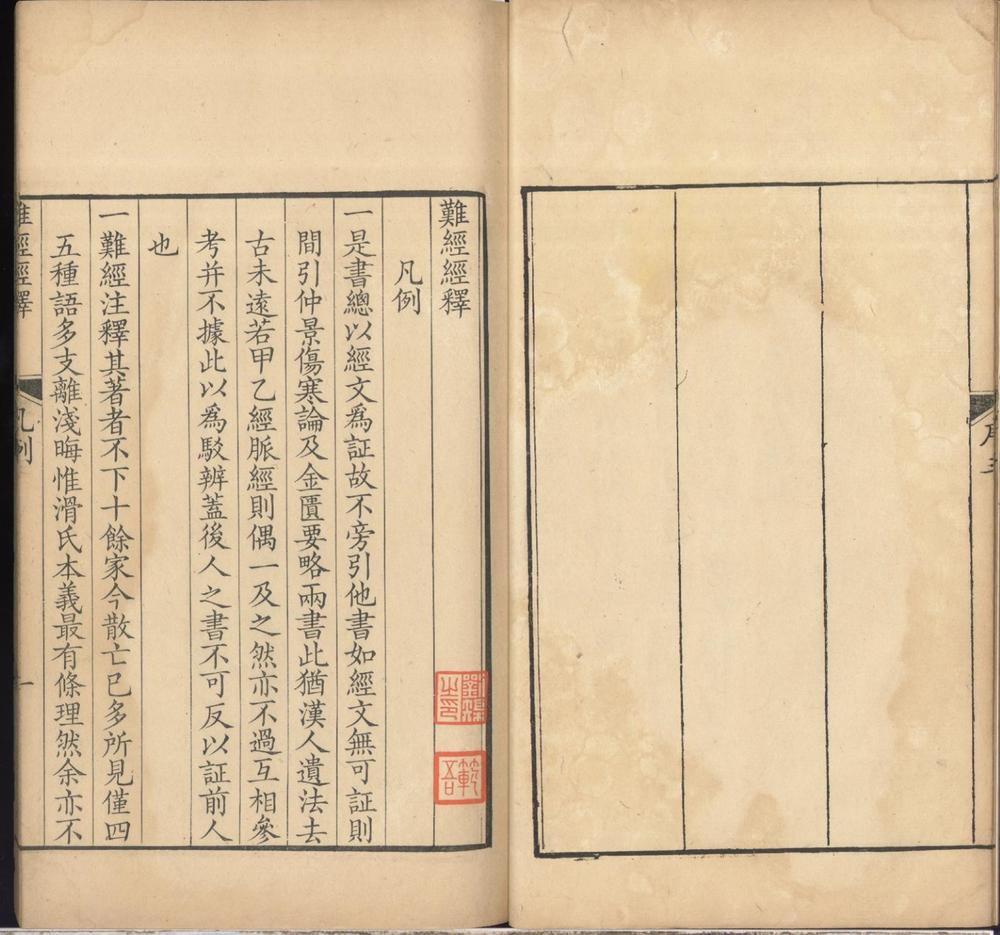 序
難經經釋
凡例
一是書總以經文爲証故不旁引他書如經文無可証則
間引仲景傷寒論及金匱要略兩書此猶漢人遺法去
古未遠若甲乙經脈經則偶一及之然亦不過互相參
考并不據此以爲駁辨蓋後人之書不可反以証前人
也
一難經注釋其著者不下十餘家今散亡已多所見僅四
五種語多支離淺晦惟滑氏本義最有條理然余亦不
難經經釋
凡例
一